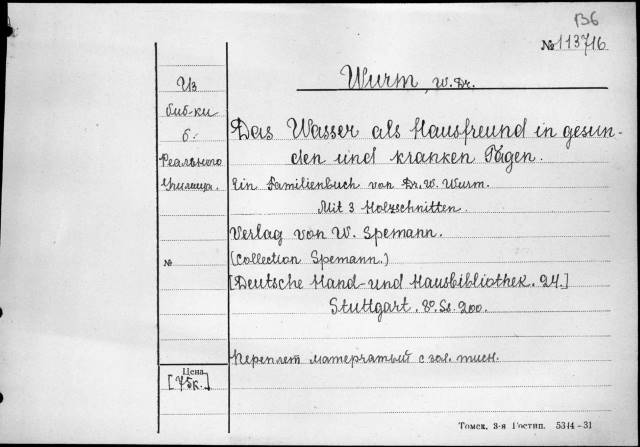 В6
№ 113716
Wurm, W. Dr.
Из
биб-ки
б.
Реального
Училища.
Das Wasser als Hausfreund in gesun-
den und kranken Tagen.
Ein Familienbuch von Dr. W. Wurm.
Mit 3 Holzschnitten.
Verlag von W. Spemann.
(Collection Spemann.)
№
[Deutsche Hand- und Hausbibliothek. 24.]
Stuttgart. 8º. Ss. 200.
Переплет матерчатый с зол. тисн.
Цена
[75к.]
Томск. 3-я Гостип. 5344-31